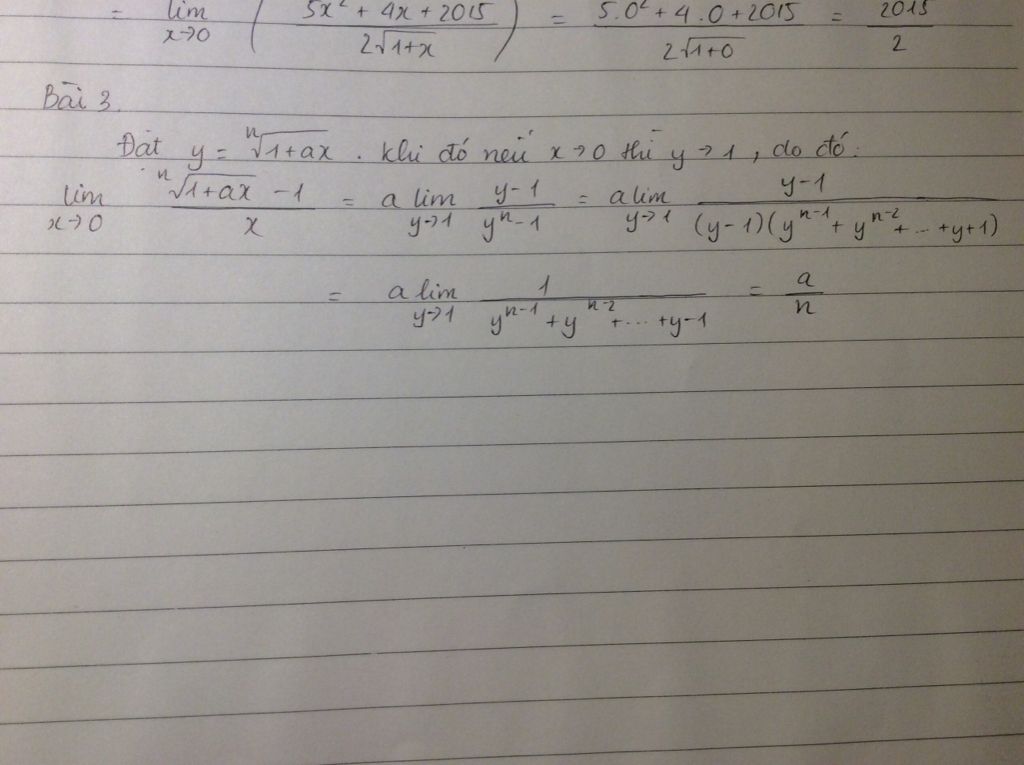 = lim x→0 ( 5x² + 4x + 2015 / 2√1+x ) = 5.0² + 4.0 + 2015 / 2√1+0 = 2015 / 2
Bài 3.
Đặt y = ⁿ√1+ax . Khi đó nếu x → 0 thì y → 1 , do đó:
lim x→0 ⁿ√1+ax - 1 / x = a lim y→1 y-1 / yⁿ-1 = a lim y→1 y-1 / (y-1)(yⁿ⁻¹ + yⁿ⁻² + ... + y+1)
= a lim y→1 1 / yⁿ⁻¹ + yⁿ⁻² + ... + y-1 = a / n